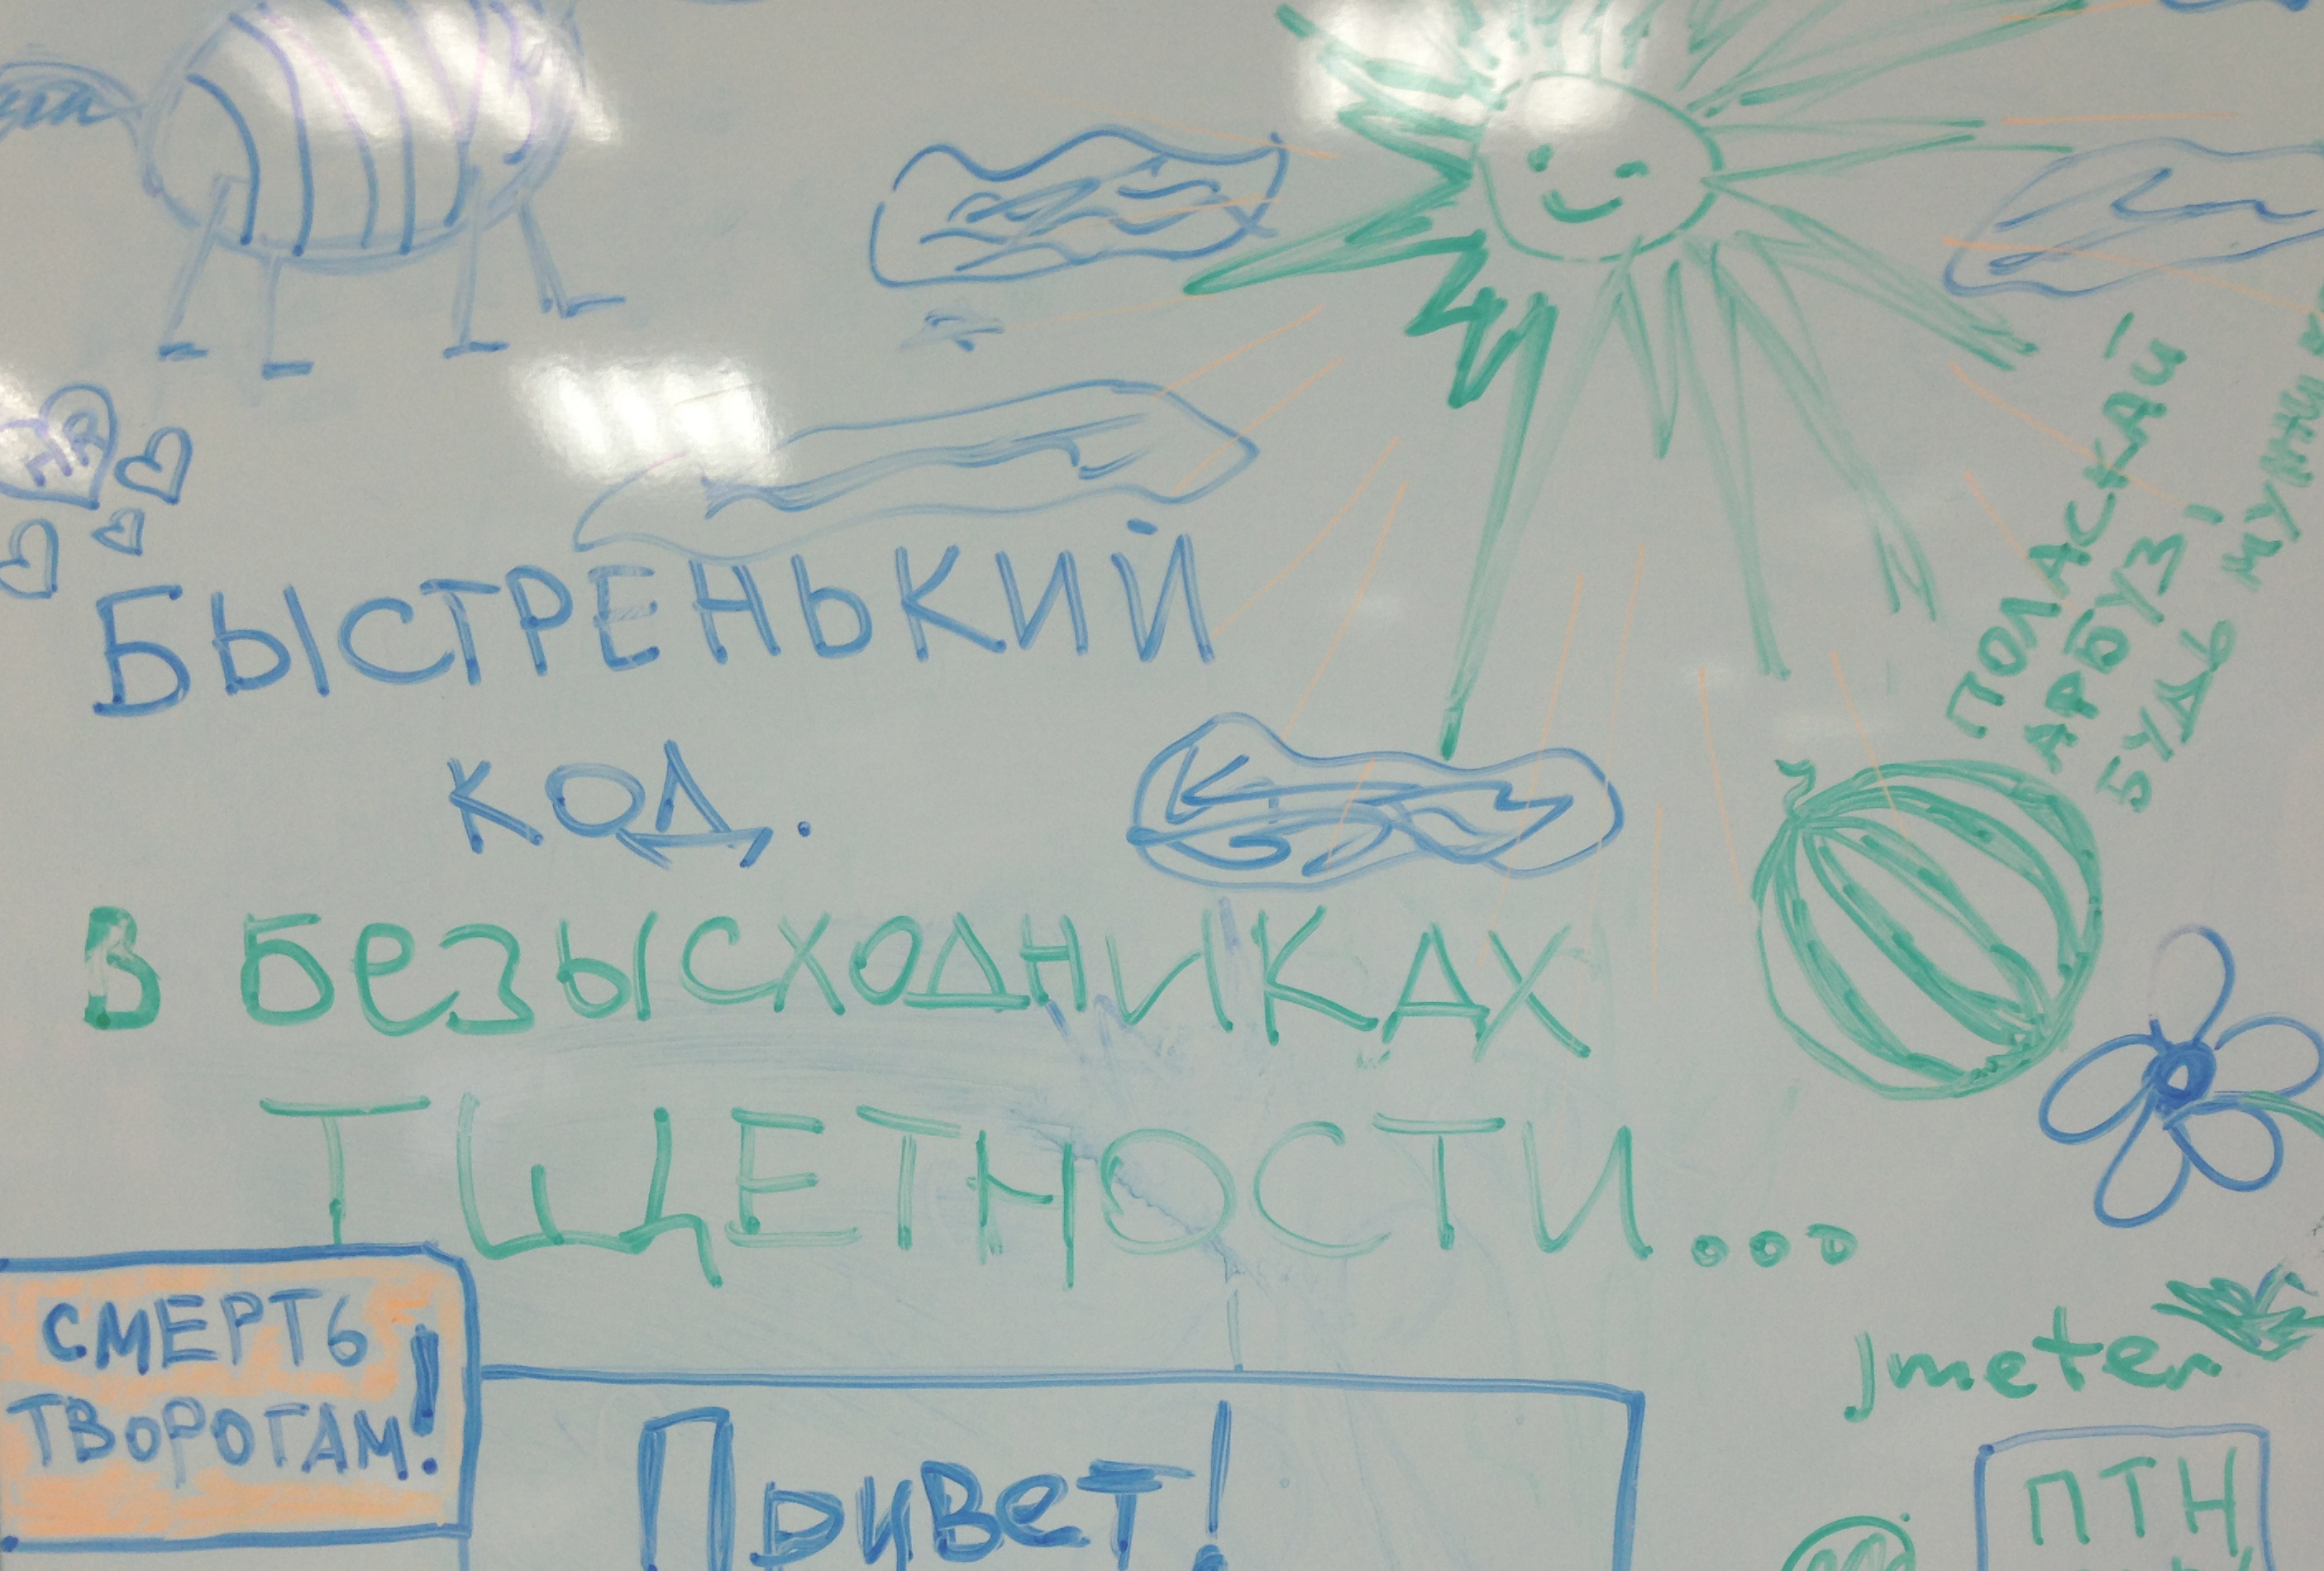 HR
БЫСТРЕНЬКИЙ
КОД.
В БеЗЫСХОДНИКАХ
ТЩЕТНОСТИ...
ПОЛАСКАЙ
АРБУЗ!
БУДЬ
СМЕРТЬ
ТВОРОГАМ!
Привет!
jmeter
ПТН